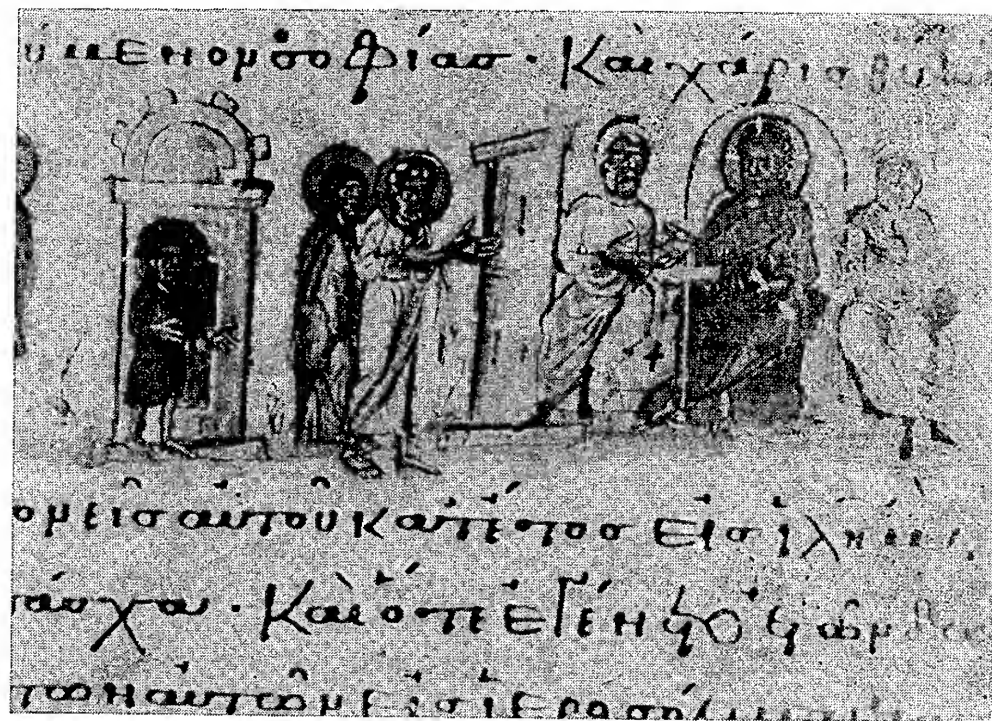 ύμενον σοφίας · Καὶ χάρις θυ
νεῖς αὐτοῦ κατέτος εἰς ἰλὴμ
πάσχα · Καὶ ὅτε ἐγένετο ἐτῶν
των αὐτῶν εἰς ἱεροσόλυμα